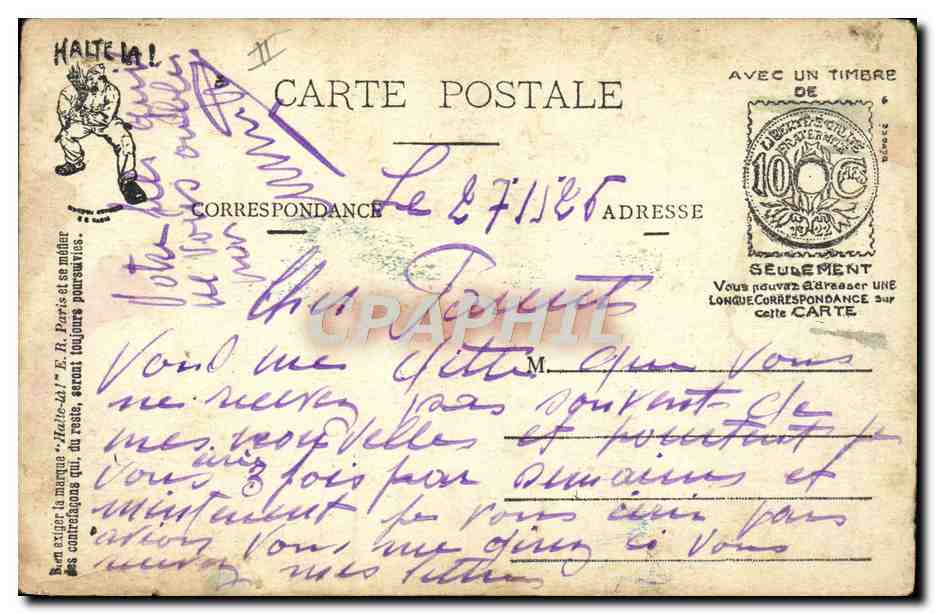 HALTE LA !
II
CARTE POSTALE
AVEC UN TIMBRE
DE
LIBERTE EGALITE
FRATERNITE
10 CMES
1922
SEULEMENT
Vous pouvez adresser UNE
LONGUE CORRESPONDANCE sur
cette CARTE
CORRESPONDANCE
ADRESSE
Le 27 1 1926
Votre fils qui
ne vous oublie
Bien exiger la marque "Halte-là!" E. R. Paris et se méfier
des contrefaçons qui, du reste, seront toujours poursuivies.
Cher Parents
CPAPHIL
M.
Vous me ditte que vous
ne recevez pas souvent de
mes nouvelles et pourtant je
vous écrie 3 fois par semaines et
maintenent je vous écri par
avion vous me direz si vous
recevez mes lettres